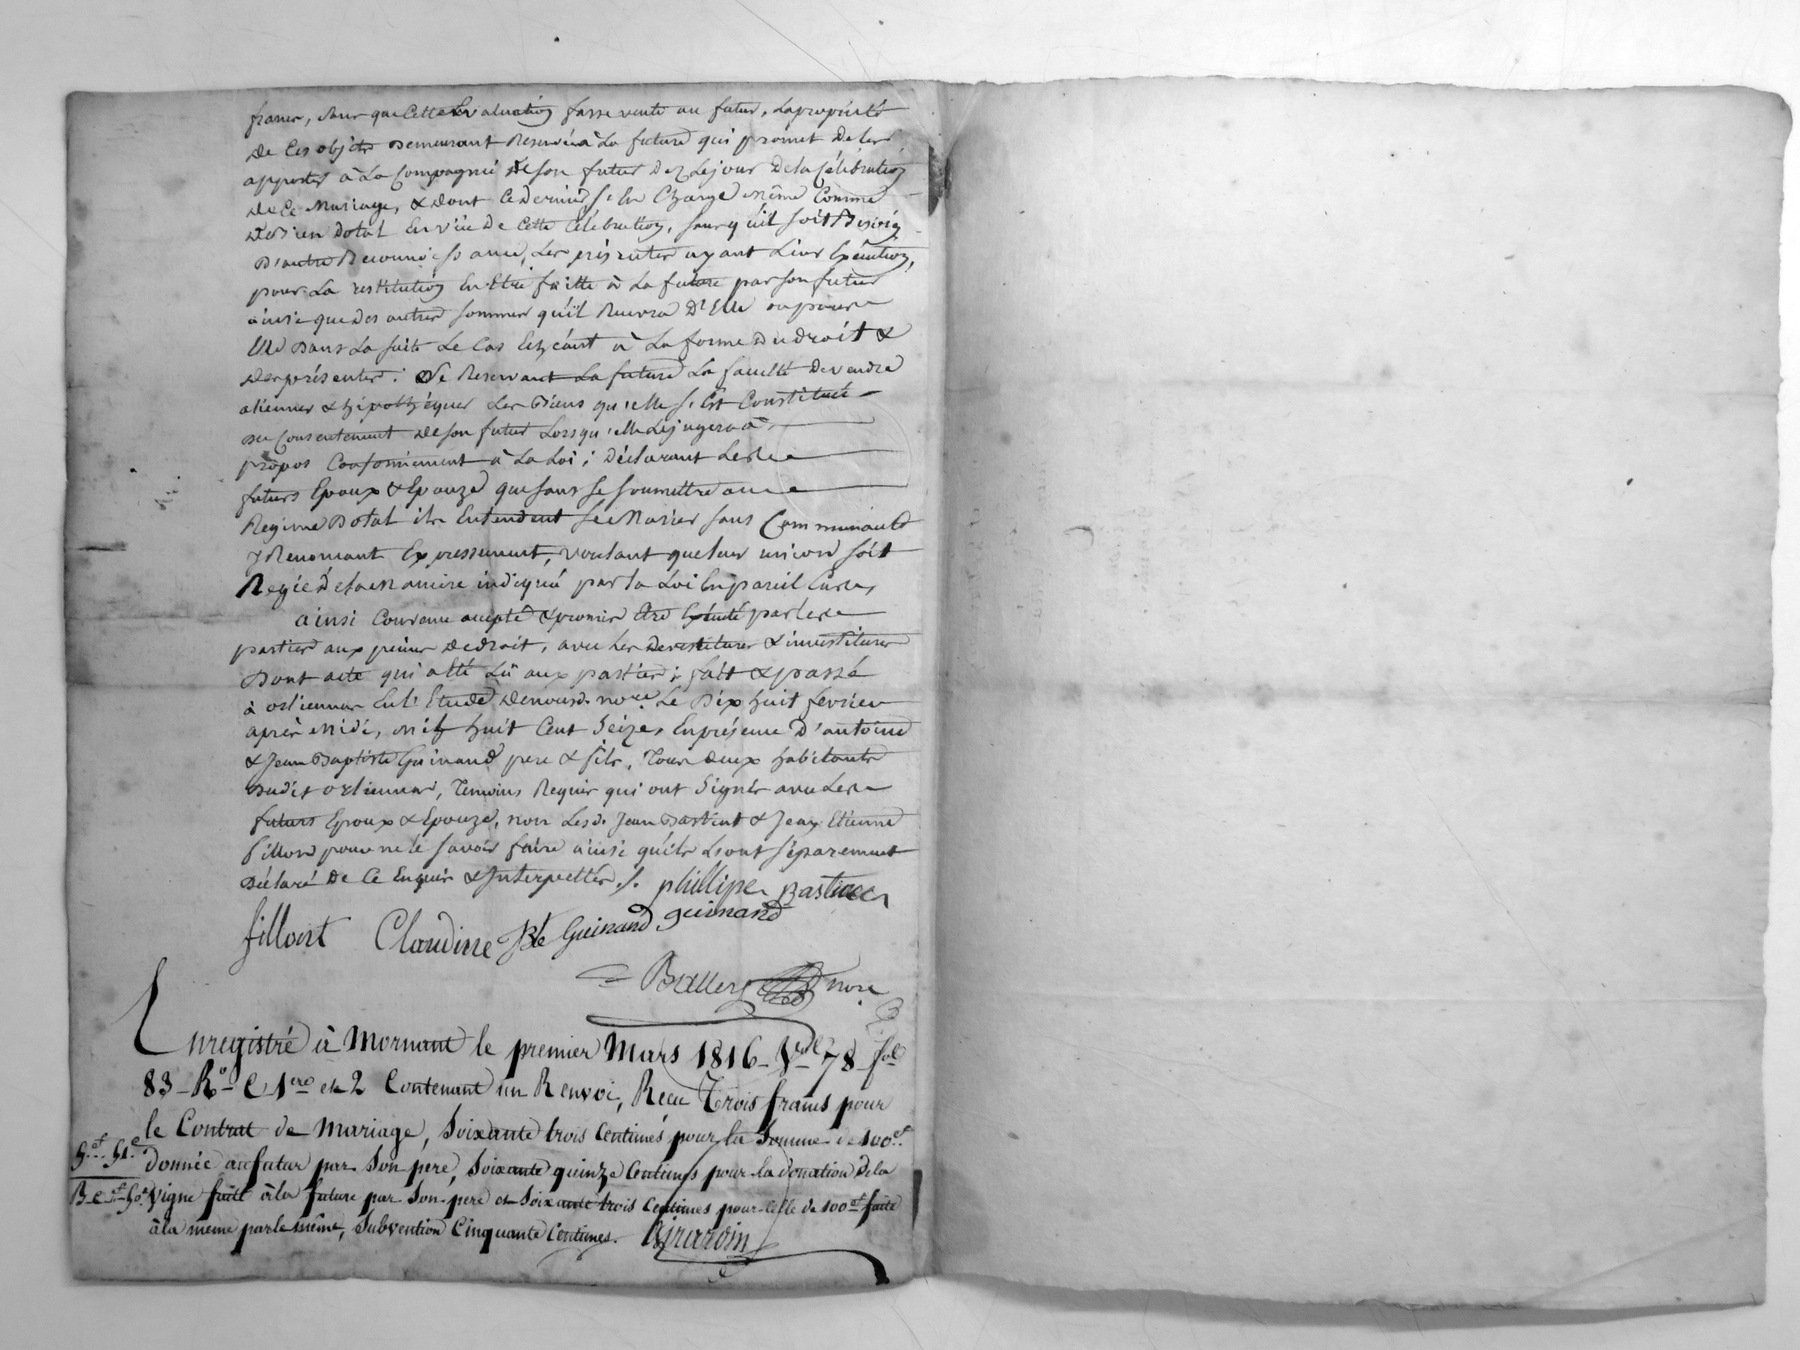 francs, sans que cette Evaluation fasse vente au futur, la propriété
de ces objets demeurant Reservéa à La future qui promet de les
apporter à La Compagnie de son futur dez Lejour de la Célébration
de Ce Mariage, & dont Ce dernier s'En Charge même Comme
de bien dotal En vüe de Cette Célébration, sans quil soit Besoin
d'autre Reconnoissance, Les présentes ayant Lieu Exécution,
pour La restitution En Etre faitte à La future par son futur
ainsi que des autres sommes qu'il Recevra D'Elle ou pour
Elle dans La suite Le Cas Echéant à La forme du droit &
des présentes : Se Reservant La future La faculté de vendre
alienner & hipothéquer Les Biens qu'elle s'Est Constitués
du Consentement de son futur Lorsqu'elle Lejugera à
propos Conformement à La Loi ; déclarant Les
futurs Epoux & Epouze que sans se soumettre au
Regime Dotal ils Entendent se Marier sans Communauté
y Renonçant Expressement, voulant que leur union soit
Regie de la Maniere indiquée par la Loi En pareil Cas,
ainsi Convenu accepté & promis Etre Exécuté par Les
parties aux peines de droit, avec Les devestitures & investitures
Dont acte qui a Eté Lû aux parties ; fait & passé
à orlienas En l'Etude de nousd. nore. Le Dix huit fevrier
après Midi, Mil huit Cent Seize, En présence d'antoine
& Jean Baptiste Guinand pere & fils, Tous deux habitants
dudit orlienas, Temoins Requis qui ont Signés avec Les
futurs Epoux & Epouze, non Lesd. Jean Bastint & Jean Etienne
fillon pour ne le savoir faire ainsi qu'ils L'ont séparement
Déclaré de Ce Enquis & Interpellés ./. phillipe Bastien
filloist Claudine JBte Guinand guinand
Ballery nore
Enregistré à Mornant le premier Mars 1816 Vol 78 fol
83 Ro C 1ere et 2 Contenant un Renvoi, Recu Trois francs pour
le Contrat de Mariage, Soixante trois Centimes pour la Somme de 100f
5f. 51c donnée au futur par Son pere, Soixante quinze Centimes pour la donation de la
vigne faitte à la future par Son pere et Soixante trois Centimes pour Celle de 100f faite
à la meme par le même, Subvention Cinquante Centimes. Girardin